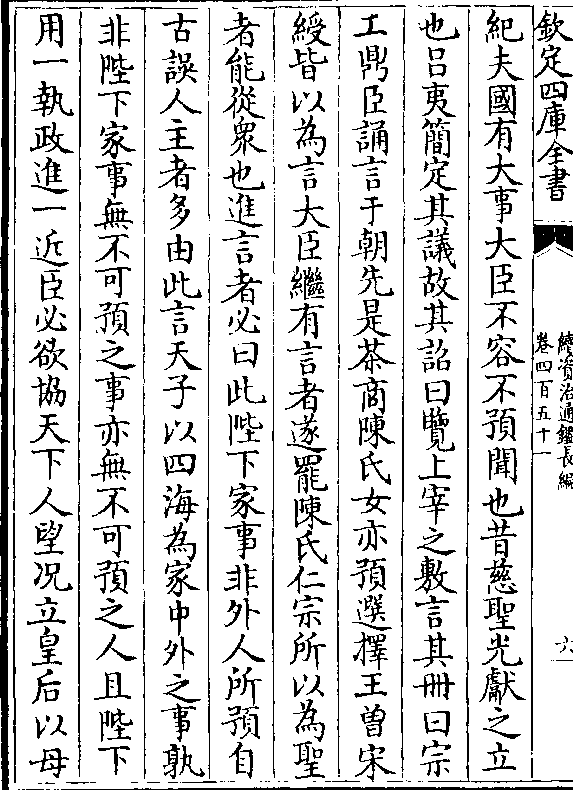 欽定四庫全書
續資治通鑑長編
卷四百五十一
六
紀夫國有大事大臣不容不預聞也昔慈聖光獻之立
也吕夷簡定其議故其詔曰覽上宰之敷言其冊曰宗
工鼎臣誦言于朝先是茶商陳氏女亦預選擇王曾宋
綬皆以為言大臣繼有言者遂罷陳氏仁宗所以為聖
者能從衆也進言者必曰此陛下家事非外人所預自
古誤人主者多由此言天子以四海為家中外之事孰
非陛下家事無不可預之事亦無不可預之人且陛下
用一執政進一近臣必欲協天下人望况立皇后以母